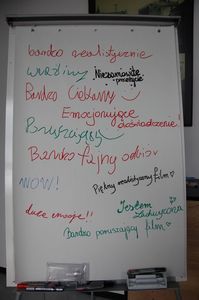 bardzo realistycznie
wrażliwy Niesamowite
przeżycie
Bardzo Ciekawy
Emocjonujące
doświadczenie
Wzruszający
Bardzo fajny odbiór
WOW!
Piękny realistyczny film
duże emocje!!
Jestem
zachwycona
Bardzo poruszający film